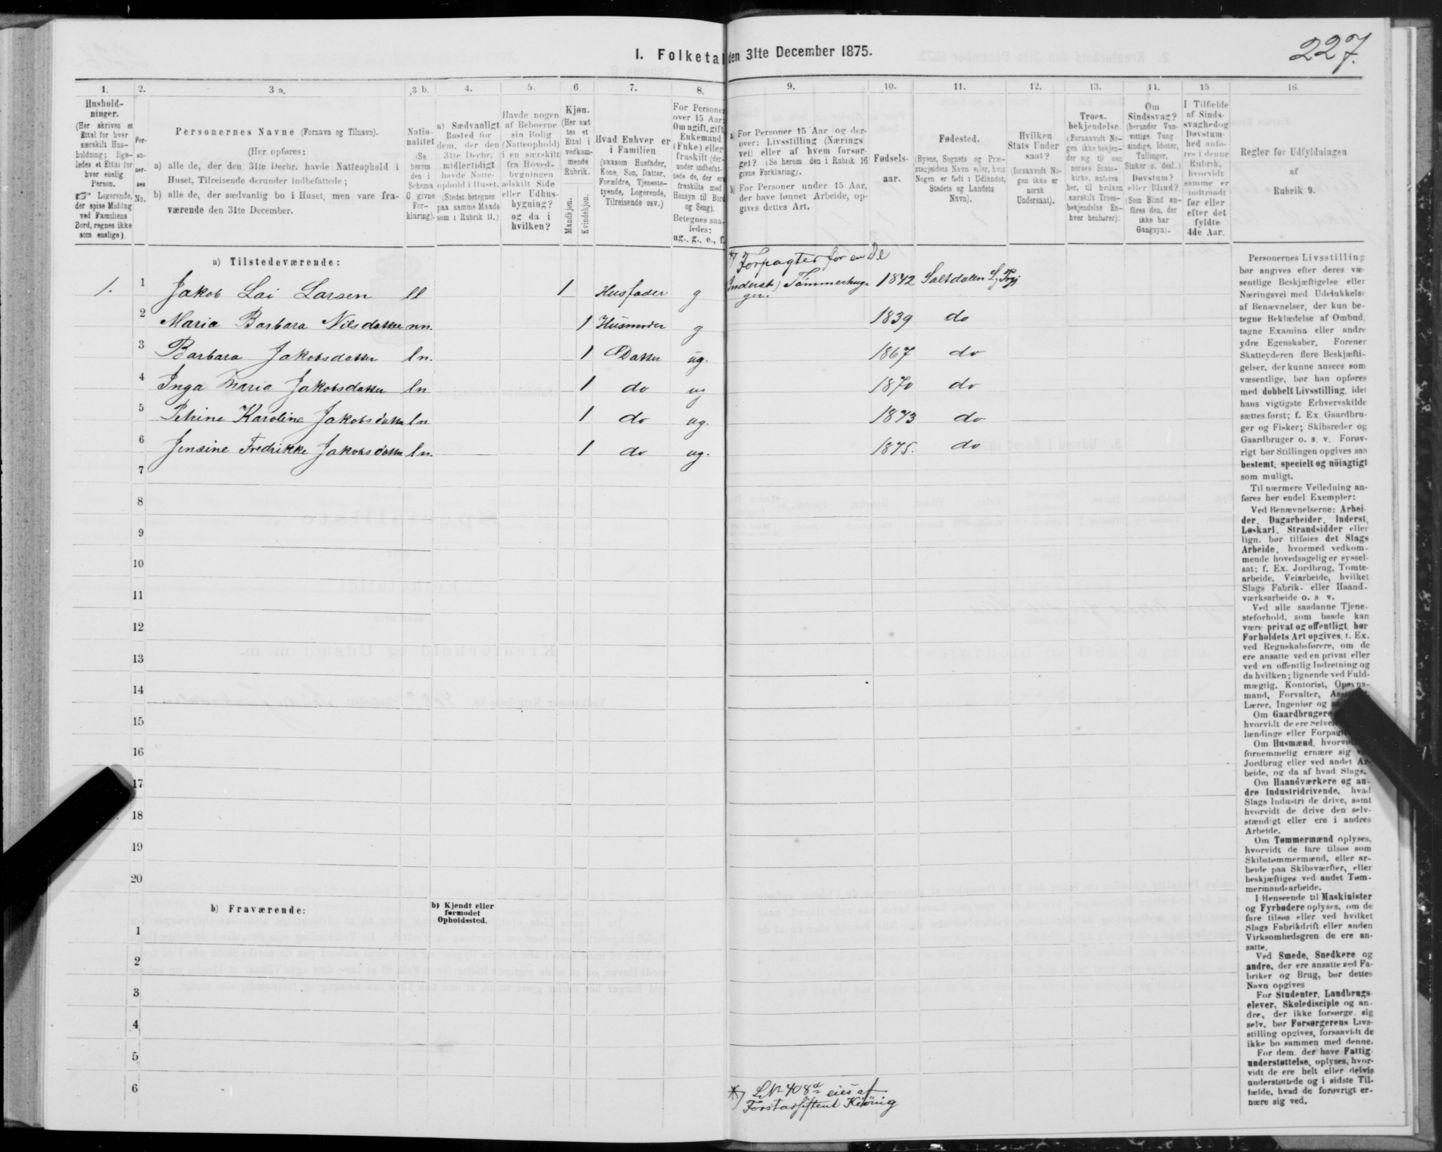 227.
I. Folketal den 31te December 1875.
1.
Hushold-
ninger.
2.
3 a.
Personernes Navne (Fornavn og Tilnavn).
(Her opføres:
a) alle de, der den 31te Decbr. havde Natteophold i
Huset, Tilreisende derunder indbefattede;
b) alle de, der sædvanlig bo i Huset, men vare fra-
værende den 31te December.
3 b.
Natio-
nalitet
4.
a) Sædvanligt
Bosted for
dem, der den
31te Decbr.
midlertidigt
havde Natte-
ophold i Huset.
5.
Havde nogen
af Beboerne
sin Bolig
(Natteophold)
i en særskilt
fra Hoved-
bygningen
adskilt Side
eller Udhus-
bygning?
og da i
hvilken?
6
Kjøn.
Mandkjøn.
Kvindekjøn.
7.
Hvad Enhver er
i Familien
(saasom Husfader,
Kone, Søn, Datter,
Forældre, Tjeneste-
tyende, Logerende,
Tilreisende osv.)
8.
For Personer
over 15 Aar:
Om ugift, gift,
Enkemand
(Enke) eller
fraskilt
9.
a) For Personer 15 Aar og der-
over: Livsstilling (Nærings-
vei) eller af hvem forsør-
get? (Se herom den i Rubrik 16
givne Forklaring).
b) For Personer under 15 Aar,
der have lønnet Arbeide, op-
gives dettes Art.
10.
Fødsels-
aar.
11.
Fødested.
(Byens, Sognets og Præ-
stegjeldets Navn eller, hvis
Nogen er født i Udlandet,
Stedets og Landets
Navn).
12.
Hvilken
Stats Under
saat?
(forsaavidt No-
gen ikke er
norsk
Undersaat).
13.
Troes-
bekjendelse.
14.
Om
Sindssvag?
Døvstum?
eller Blind?
15
I Tilfælde
af Sinds-
svaghed og
Døvstum-
hed anfø-
res i denne
Rubrik,
hvorvidt
samme er
indtraadt
før eller
efter det
fyldte
4de Aar.
16.
Regler for Udfyldningen
af
Rubrik 9.
a) Tilstedeværende:
*) Forpagter for en De
1. 1 Jakob Lai Larsen ll 1 Husfader g Inderst) Tømmerhug- 1842 Saltdalen
ger.
2 Maria Barbara Nilsdatter nn. 1 Husmoder g 1839 do
3 Barbara Jakobsdatter ln. 1 Datter ug. 1867 do
4 Inga Maria Jakobsdatter ln 1 do ug 1870 do
5 Petrine Karoline Jakobsdatter ln 1 do ug. 1873 do
6 Jensine Fredrikke Jakobsdatter ln. 1 do ug. 1875. do
7
8
9
10
11
12
13
14
15
16
17
18
19
20
b) Fraværende:
b) Kjendt eller
formodet
Opholdssted.
1
2
3
4
5
6
*) LN 408a eies af
Forstassistent Kiönig
Personernes Livsstilling
bør angives efter deres væ-
sentlige Beskjæftigelse eller
Næringsvei med Udelukkelse
af Benævnelser, der kun be-
tegne Beklædelse af Ombud,
tagne Examina eller andre
ydre Egenskaber. Forener
Skatteyderen flere Beskjæfti-
gelser, der kunne ansees som
væsentlige, bør han opføres
med dobbelt Livsstilling, idet
hans vigtigste Erhvervskilde
sættes først; f. Ex. Gaardbru-
ger og Fisker; Skibsreder og
Gaardbruger o. s. v. Forøv-
rigt bør Stillingen opgives saa
bestemt, specielt og nöiagtigt
som muligt.
Til nærmere Veiledning an-
føres her endel Exempler:
Ved Benævnelserne: Arbei-
der, Dagarbeider, Inderst,
Løskarl, Strandsidder eller
lign. bør tilføies det Slags
Arbeide, hvormed vedkom-
mende hovedsagelig er syssel-
sat; f. Ex. Jordbrug, Tomte-
arbeide, Veiarbeide, hvilket
Slags Fabrik- eller Haand-
værksarbeide o. s. v.
Ved alle saadanne Tjene-
steforhold, som baade kan
være privat og offentligt, bør
Forholdets Art opgives, t. Ex.
ved Regnskabsførere, om de
ere ansatte ved en privat eller
ved en offentlig Indretning og
da hvilken; lignende ved Fuld-
mægtig, Kontorist,
mand, Forvalter,
Lærer, Ingeniør og
Om Gaardbrugere
hvorvidt de ere
lændinge eller
Om Husmænd,
fornemmelig ernære sig
Jordbrug eller ved andet Ar-
beide, og da af hvad Slags.
Om Haandværkere og an-
dre Industridrivende, hvad
Slags Industri de drive, samt
hvorvidt de drive den selv-
stændigt eller ere i andres
Arbeide.
Om Tømmermænd oplyses,
hvorvidt de fare tilsøs som
Skibstømmermænd, eller ar-
beide paa Skibsværfter, eller
beskjæftiges ved andet Tøm-
mermandsarbeide.
I Henseende til Maskinister
og Fyrbødere oplyses, om de
fare tilsøs eller ved hvilket
Slags Fabrikdrift eller anden
Virksomhedsgren de ere an-
satte.
Ved Smede, Snedkere og
andre, der ere ansatte ved Fa-
briker og Brug, bør dettes
Navn opgives
For Studenter, Landbrugs-
elever, Skoledisciple og an-
dre, der ikke forsørge sig
selv, bør Forsørgerens Livs-
stilling opgives, forsaavidt de
ikke bo sammen med denne.
For dem, der have Fattig-
understøttelse, oplyses, hvor-
vidt de ere helt eller delvis
understøttede og i sidste Til-
fælde, hvad de forøvrigt er-
nære sig ved.